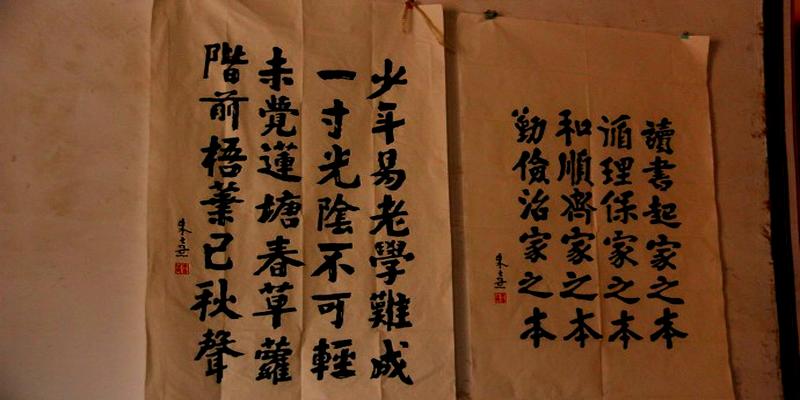 讀書起家之本
循理保家之本
和順齊家之本
勤儉治家之本
朱熹
少年易老學難成
一寸光陰不可輕
未覺蓮塘春草蘿
階前梧葉已秋聲
朱熹